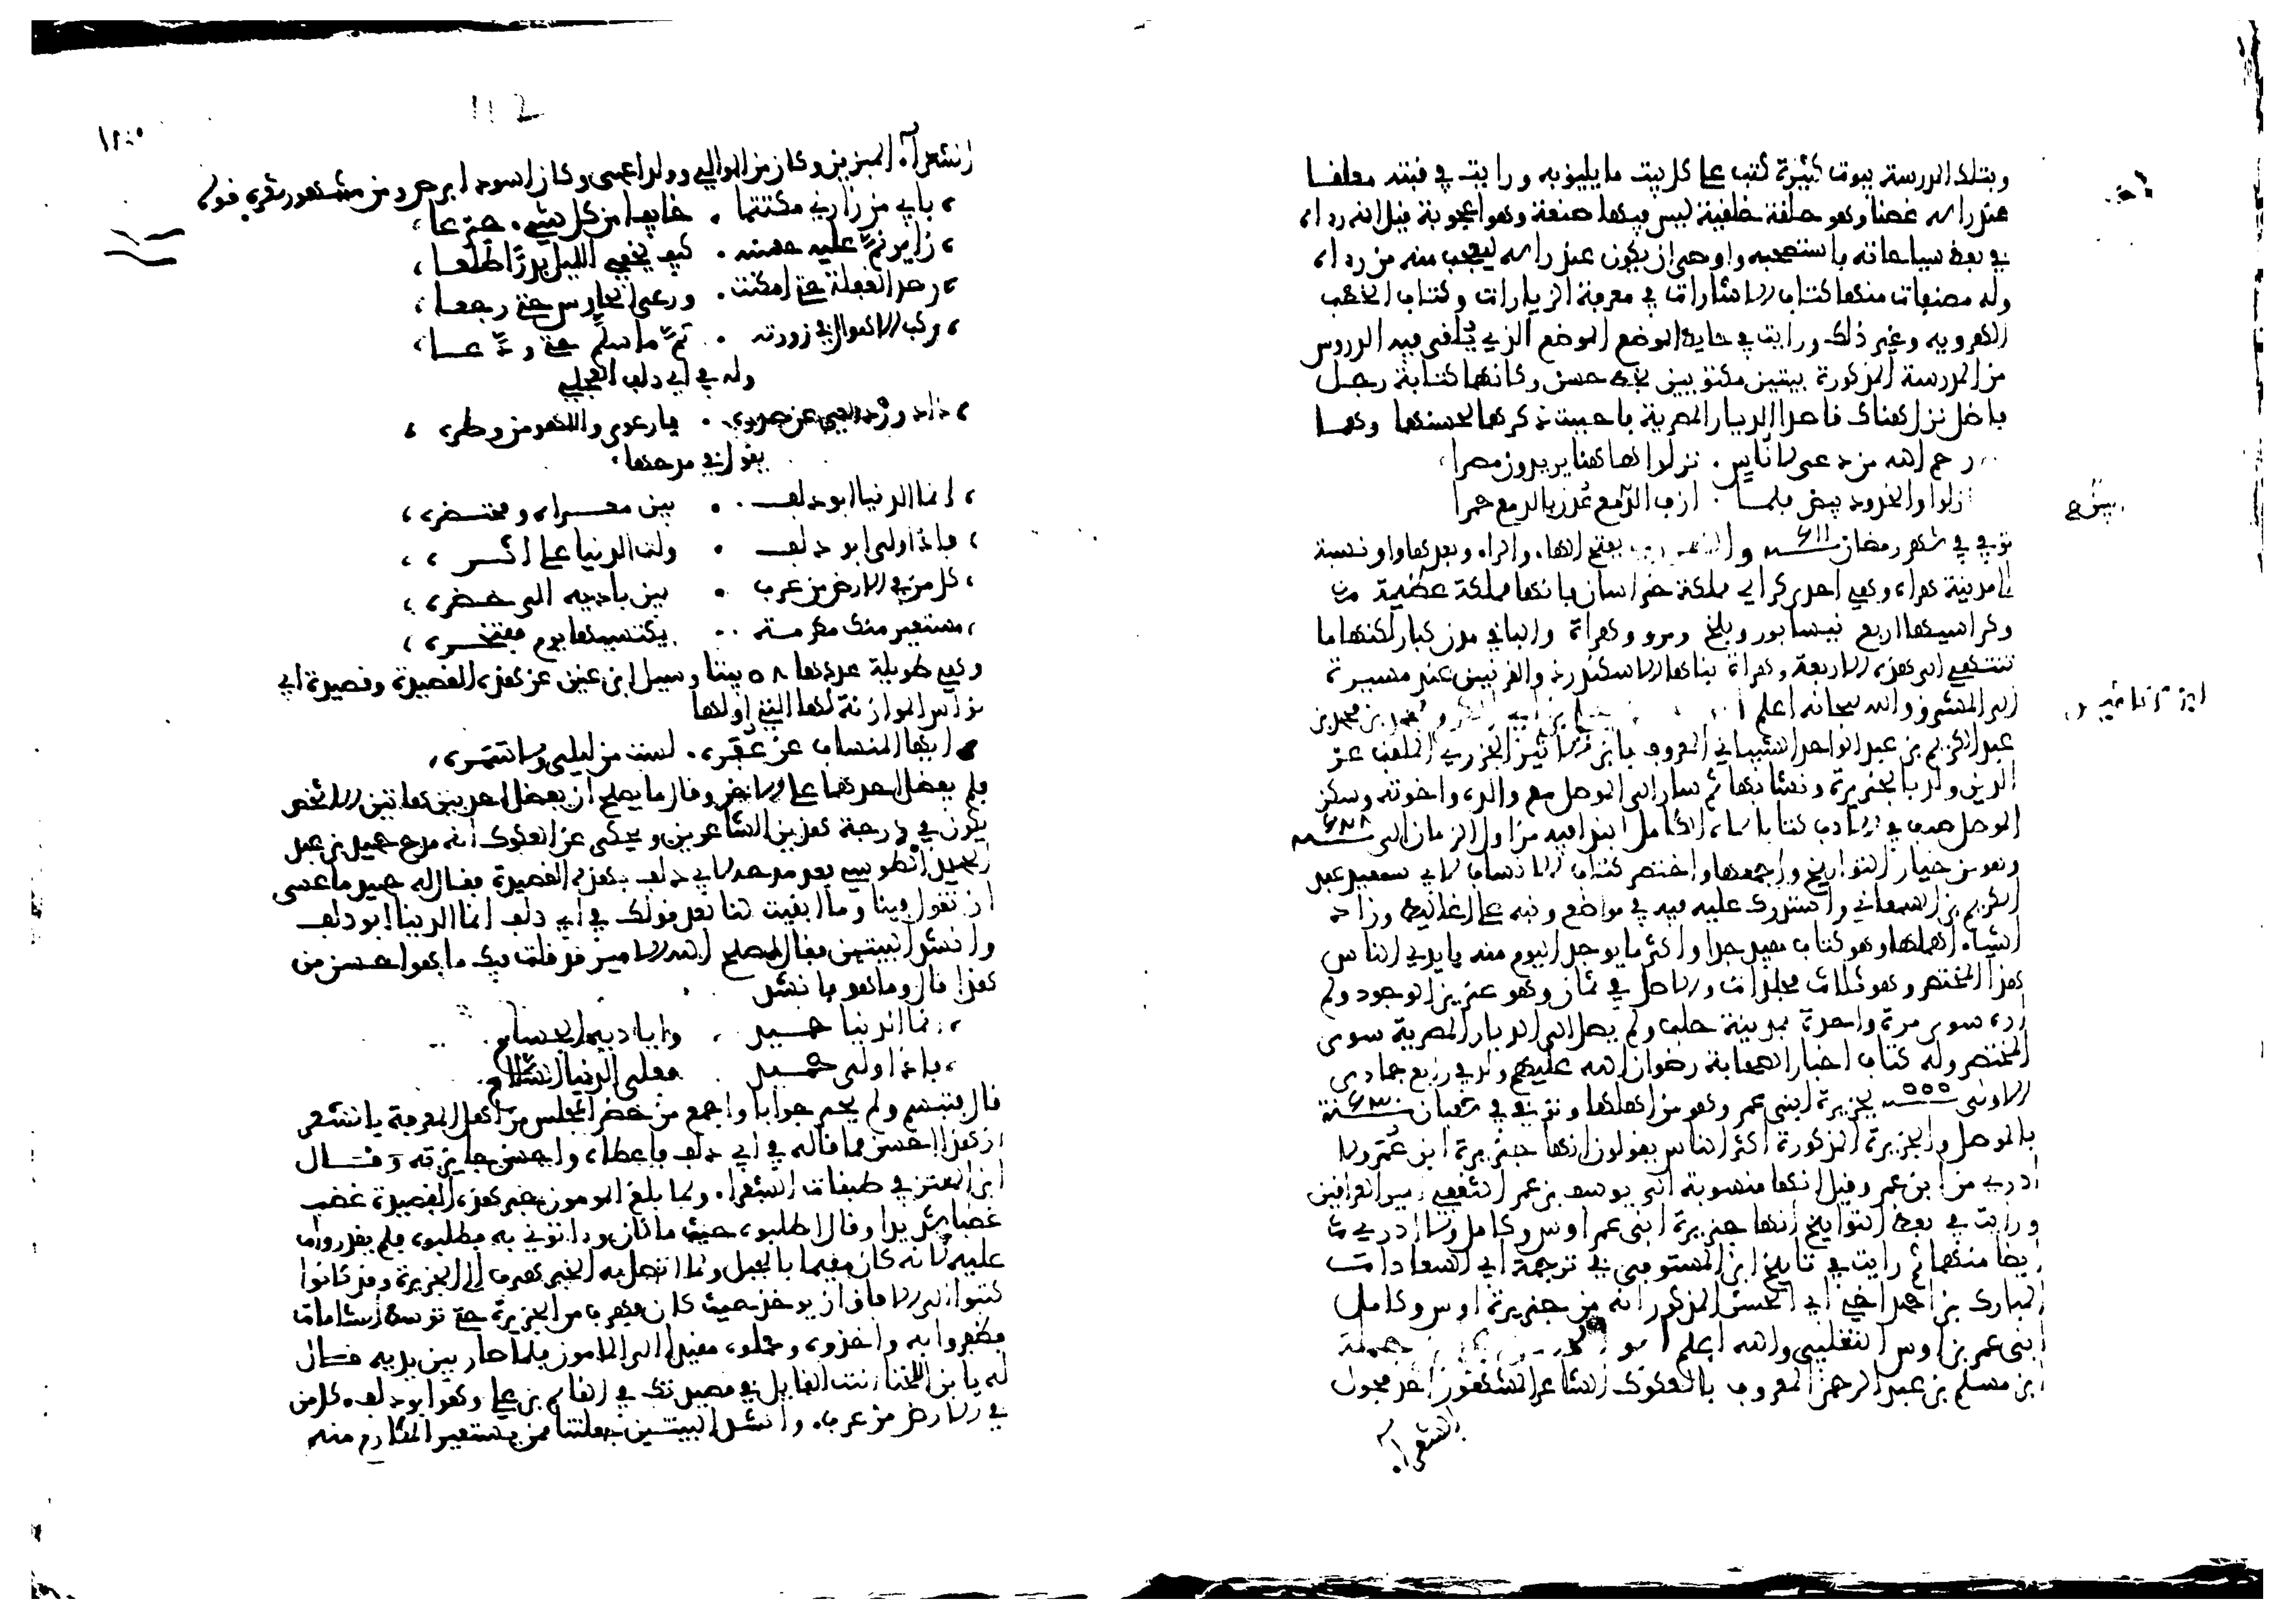 وبتلك المدرسة بيوت كثيرة كتب على كل بيت ما يليق به ورأيت في قبته معلقا
عند راسه غصنا وهو حلقة خلقية ليس فيها صنعة وهو اعجوبة قيل انه رءاه
في بعض سياحاته فاستصحبه واوصى ان يكون عند راسه ليعجب منه من رءاه
وله مصنفات منها كتاب الاشارات في معرفة الزيارات وكتاب الخطب
الهروية وغير ذلك ورأيت في حايط الموضع الذي يلقى فيه الدروس
من المدرسة المذكورة بيتين مكتوبين بخط حسن وكانها كتابة رجل
فاضل نزل هناك قاصدا الديار المصرية فاحببت ذكرها لحسنها وهما
رحم الله من دعى لاناس . نزلوا هاهنا يريدون مصرا
نزلوا والخدود بيض فلما . ازف الدمع عدن بالدمع حمرا
توفي في شهر رمضان سنة 611 والهروي بفتح الهاء والراء وبعدها واو نسبة
الى مدينة هراة وهي احدى كراسي مملكة خراسان فانها مملكة عظيمة
وكراسيها اربع نيسابور وبلخ ومرو وهراة والباقي مدن كبار لكنها ما
تنتهي الى هذه الاربعة وهراة بناها الاسكندر ذو القرنين عند مسيره
الى المشرق والله سبحانه اعلم
عبد الكريم بن عبد الواحد الشيباني المعروف بابن الاثير الجزري الملقب عز
الدين ولد بالجزيرة ونشا بها ثم سار الى الموصل مع والده واخوته وسكن
الموصل صنف في التاريخ كتابا سماه الكامل ابتدا فيه من اول الزمان الى سنة 628
وهو من خيار التواريخ واجمعها واختصر كتاب الانساب لابي سعيد عبد
الكريم بن السمعاني واستدرك عليه فيه في مواضع ونبه على اغاليط وزاد
اشياء اهملها وهو كتاب مفيد جدا واكثر ما يوجد اليوم منه بايدي الناس
هذا المختصر وهو ثلاث مجلدات والاصل في ثمان وهو عزيز الوجود ولم
اره سوى مرة واحدة بمدينة حلب ولم يصل الى الديار المصرية سوى
المختصر وله كتاب اخبار الصحابة رضوان الله عليهم ولد في رابع جمادى
الاولى سنة 555 بجزيرة ابني عمر وهو من اهلها وتوفي في شعبان سنة 630
بالموصل والجزيرة المذكورة اكثر الناس يقولون انها جزيرة ابن عمر ولا
ادري من ابن عمر وقيل انها منسوبة الى يوسف بن عمر الثقفي امير العراقين
ورأيت في بعض التواريخ انها جزيرة ابني عمر اوس وكامل ولا ادري
ايضا منهما ثم رأيت في تاريخ ابن المستوفى في ترجمة ابي السعادات
المبارك بن محمد اخي ابي الحسن المذكور انه من جزيرة اوس وكامل
ابني عمر بن اوس التغلبي والله اعلم جبلة
ابن مسلم بن عبد الرحمن المعروف بالعكوك الشاعر المشهور احد فحول
الشعراء
112
الشعراء المبرزين وكان من الموالي وولد اعمى وكان اسود ابرص ومن مشهور شعره قوله
بابي من زارني مكتتما . خايفا من كل شيء جزعا
زاير نم عليه حسنه . كيف يخفي الليل بدرا طلعا
رصد الغفلة حتى امكنت . ورعى الحارس حتى رجعا
ركب الاهوال في زورته . ثم ما سلم حتى ودعا
وله في ابي دلف العجلي
ذاد ورد الغي عن صدره . فارعوى واللهو من وطره
يقول في مدحها
انما الدنيا ابو دلف . بين معزاه ومحتضره
فاذا ولى ابو دلف . ولت الدنيا على اثره
كل من في الارض من عرب . بين باديه الى حضره
مستعير منك مكرمة . يكتسيها يوم مفتخره
وهي طويلة عددها 58 بيتا وسيل ابن عنين عن هذه القصيدة وقصيدة ابي
نواس الموازنة لها التي اولها
ايها المنتاب عن عفره . لست من ليلي ولا سمره
فلم يفضل احدهما على الاخرى وقال ما يصلح ان يفضل احد بين هاتين الا شخص
يكون في درجة هذين الشاعرين ويحكى عن العكوك انه مدح حميد بن عبد
الحميد الطوسي بعد مدحه لابي دلف بهذه القصيدة فقال له حميد ما عسى
ان تقول فينا وما ابقيت لنا بعد قولك في ابي دلف انما الدنيا ابو دلف
وانشد البيتين فقال اصلح الله الامير قد قلت فيك ما هو احسن من
هذا قال وما هو فانشد
انما الدنيا حميد . واياديه الجسام
فاذا ولى حميد . فعلى الدنيا السلام
قال فتبسم ولم يحر جوابا واجمع من حضر المجلس من اهل المعرفة بالشعر
ان هذا احسن مما قاله في ابي دلف فاعطاه واحسن جايزته وقال
ابن المعتز في طبقات الشعراء ولما بلغ المامون خبر هذه القصيدة غضب
غضبا شديدا وقال اطلبوه حيث ما كان واتوني به فطلبوه فلم يقدروا
عليه لانه كان مقيما بالجبل ولما اتصل به الخبر هرب الى الجزيرة وقد كانوا
كتبوا الى الافاق ان يوخذ حيث كان فهرب من الجزيرة حتى توسط الشامات
فظفروا به واخذوه وحملوه مقيدا الى المامون فلما صار بين يديه قال
له يا بن اللخناء انت القايل في قصيدتك في القاسم بن علي وهو ابو دلف كل من
في الارض من عرب وانشد البيتين جعلتنا ممن يستعير المكارم منه